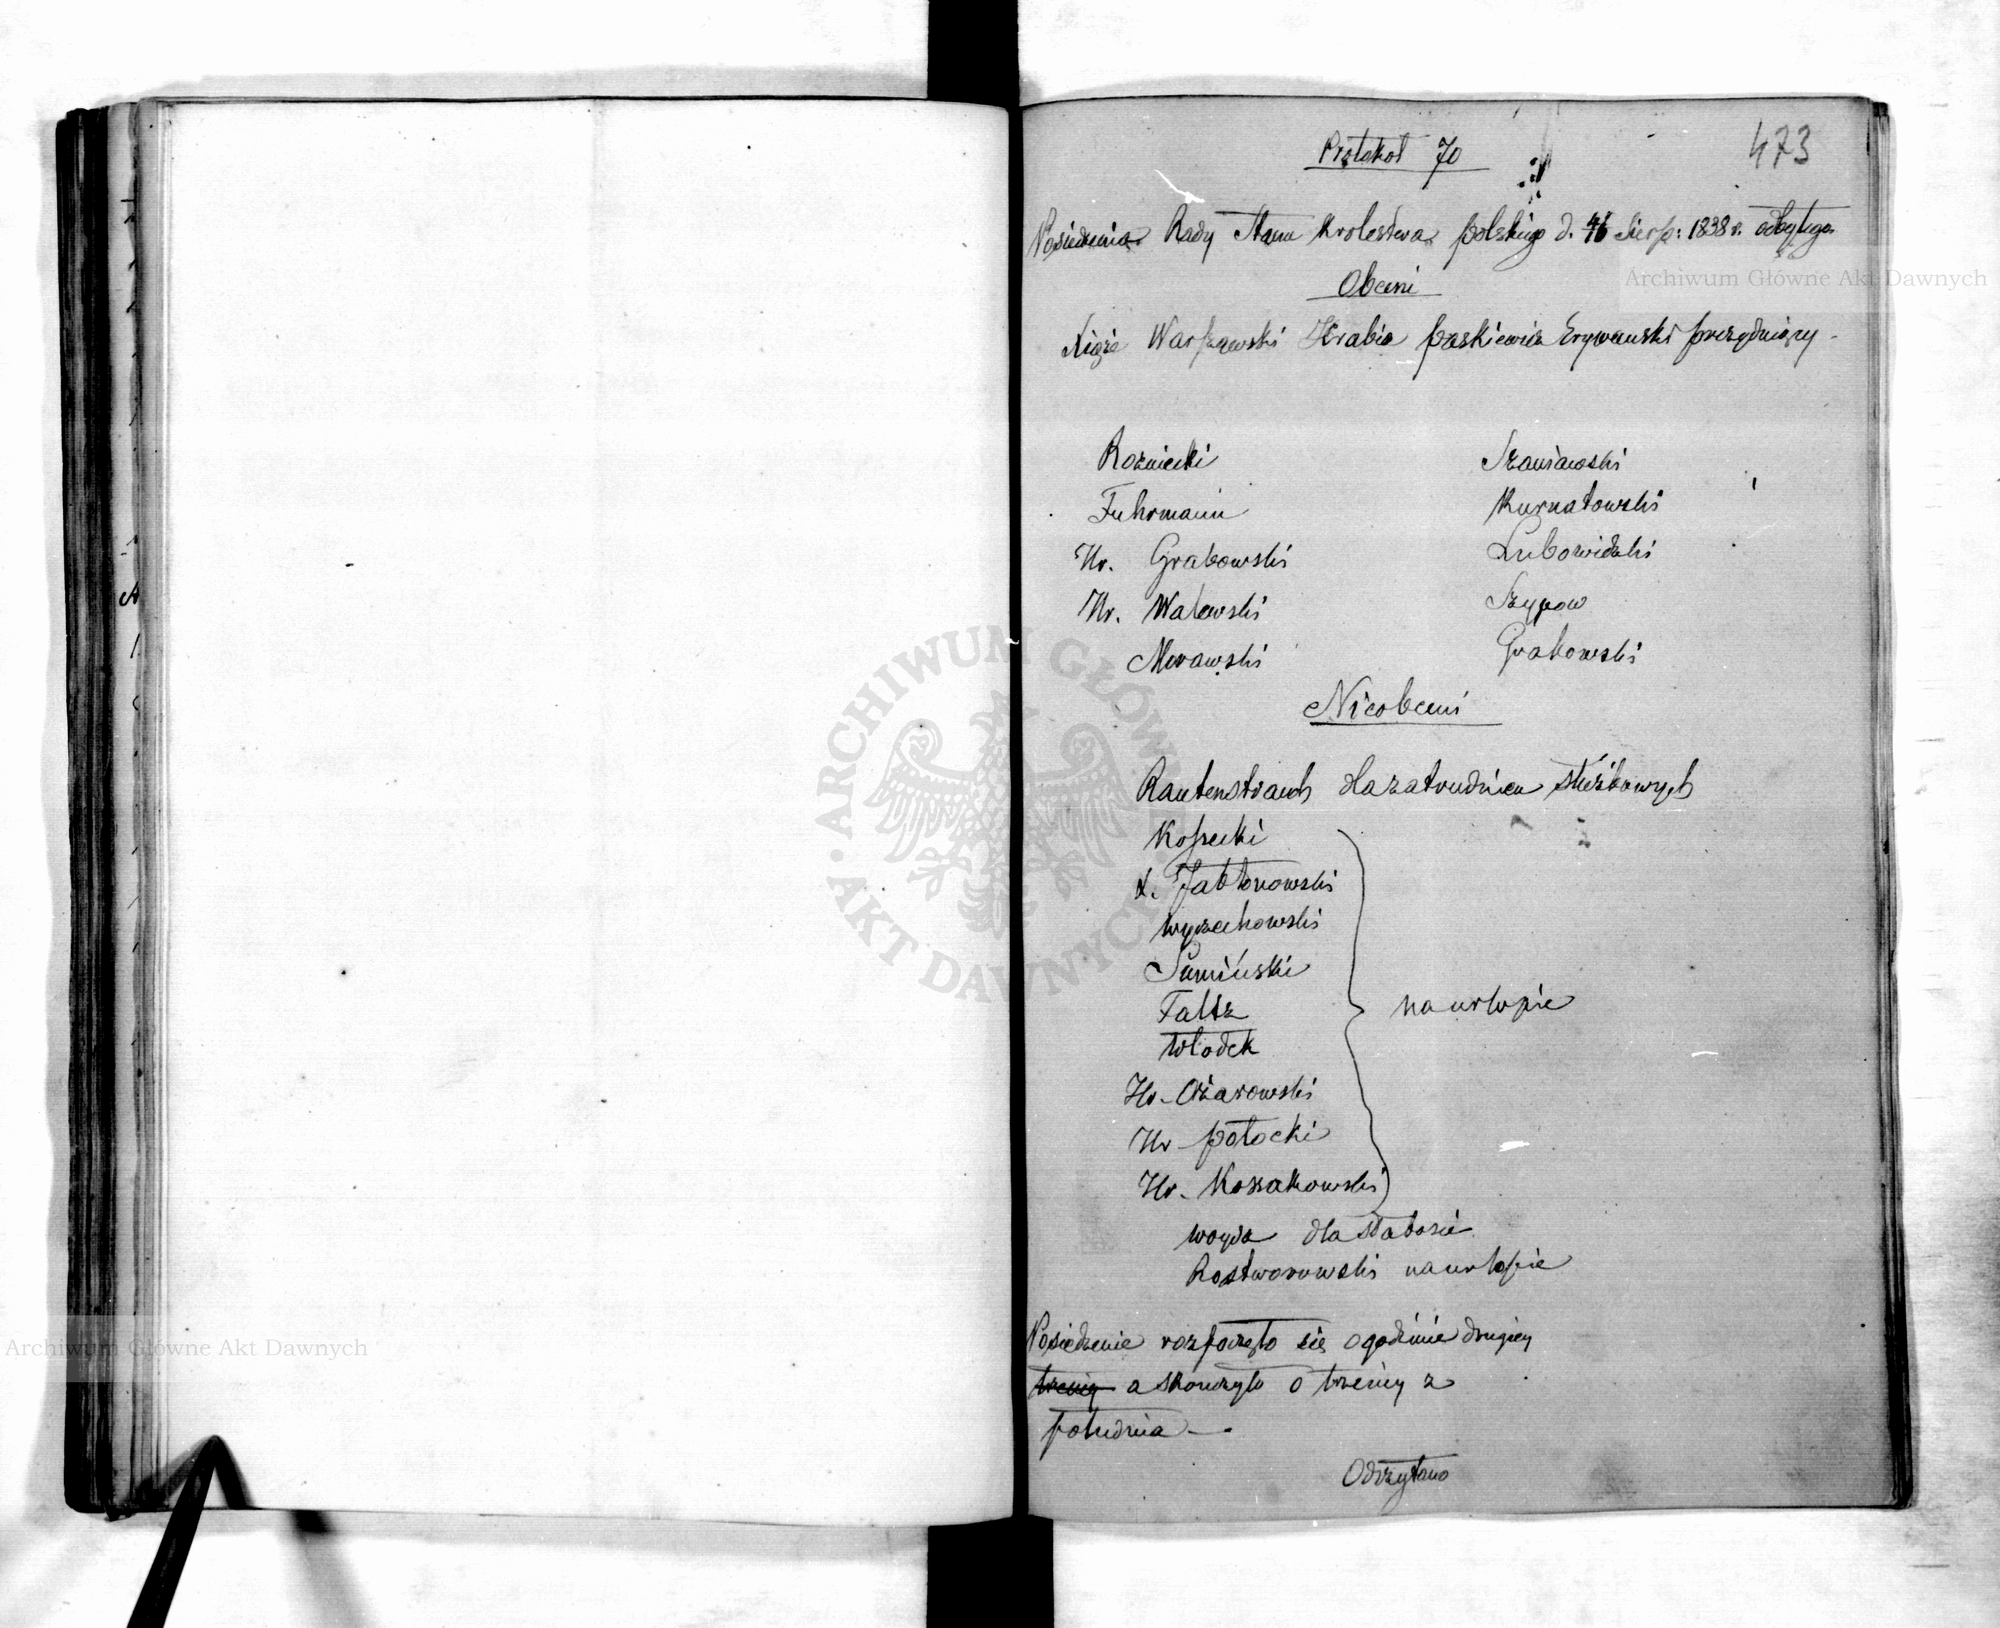 473
Protokół 70
Posiedzenia Rady Stanu Krolestwa polskiego d. Sierp: 1838 r. odbytego
Obecni
Xiąże Warszawski Hrabia paskiewicz Erywanski prezyduiący -
Rozniecki
Fuhrmann
Hr. Grabowski
Hr. Walewski
Morawski
Szaniawski
Kurnatowski
Lubowidzki
Szypow
Grabowski
Nieobecni
Rautenstrauch dla zatrudnien służbowych
Kossecki
X. Jabłonowski
Wyczechowski
Sumiński
Faltz
Włodek
Hr. Ożarowski
Hr potocki
Hr. Kossakowski
na urlopie
Woyda dla słabości
Rostworowski na urlopie
Posiedzenie rozpoczęło się o godzinie drugiey
trzeciey a skonczyło o trzeciey z
południa —
Odczytano
Archiwum Główne Akt Dawnych
Archiwum Główne Akt Dawnych
ARCHIWUM GŁÓWNE AKT DAWNYCH